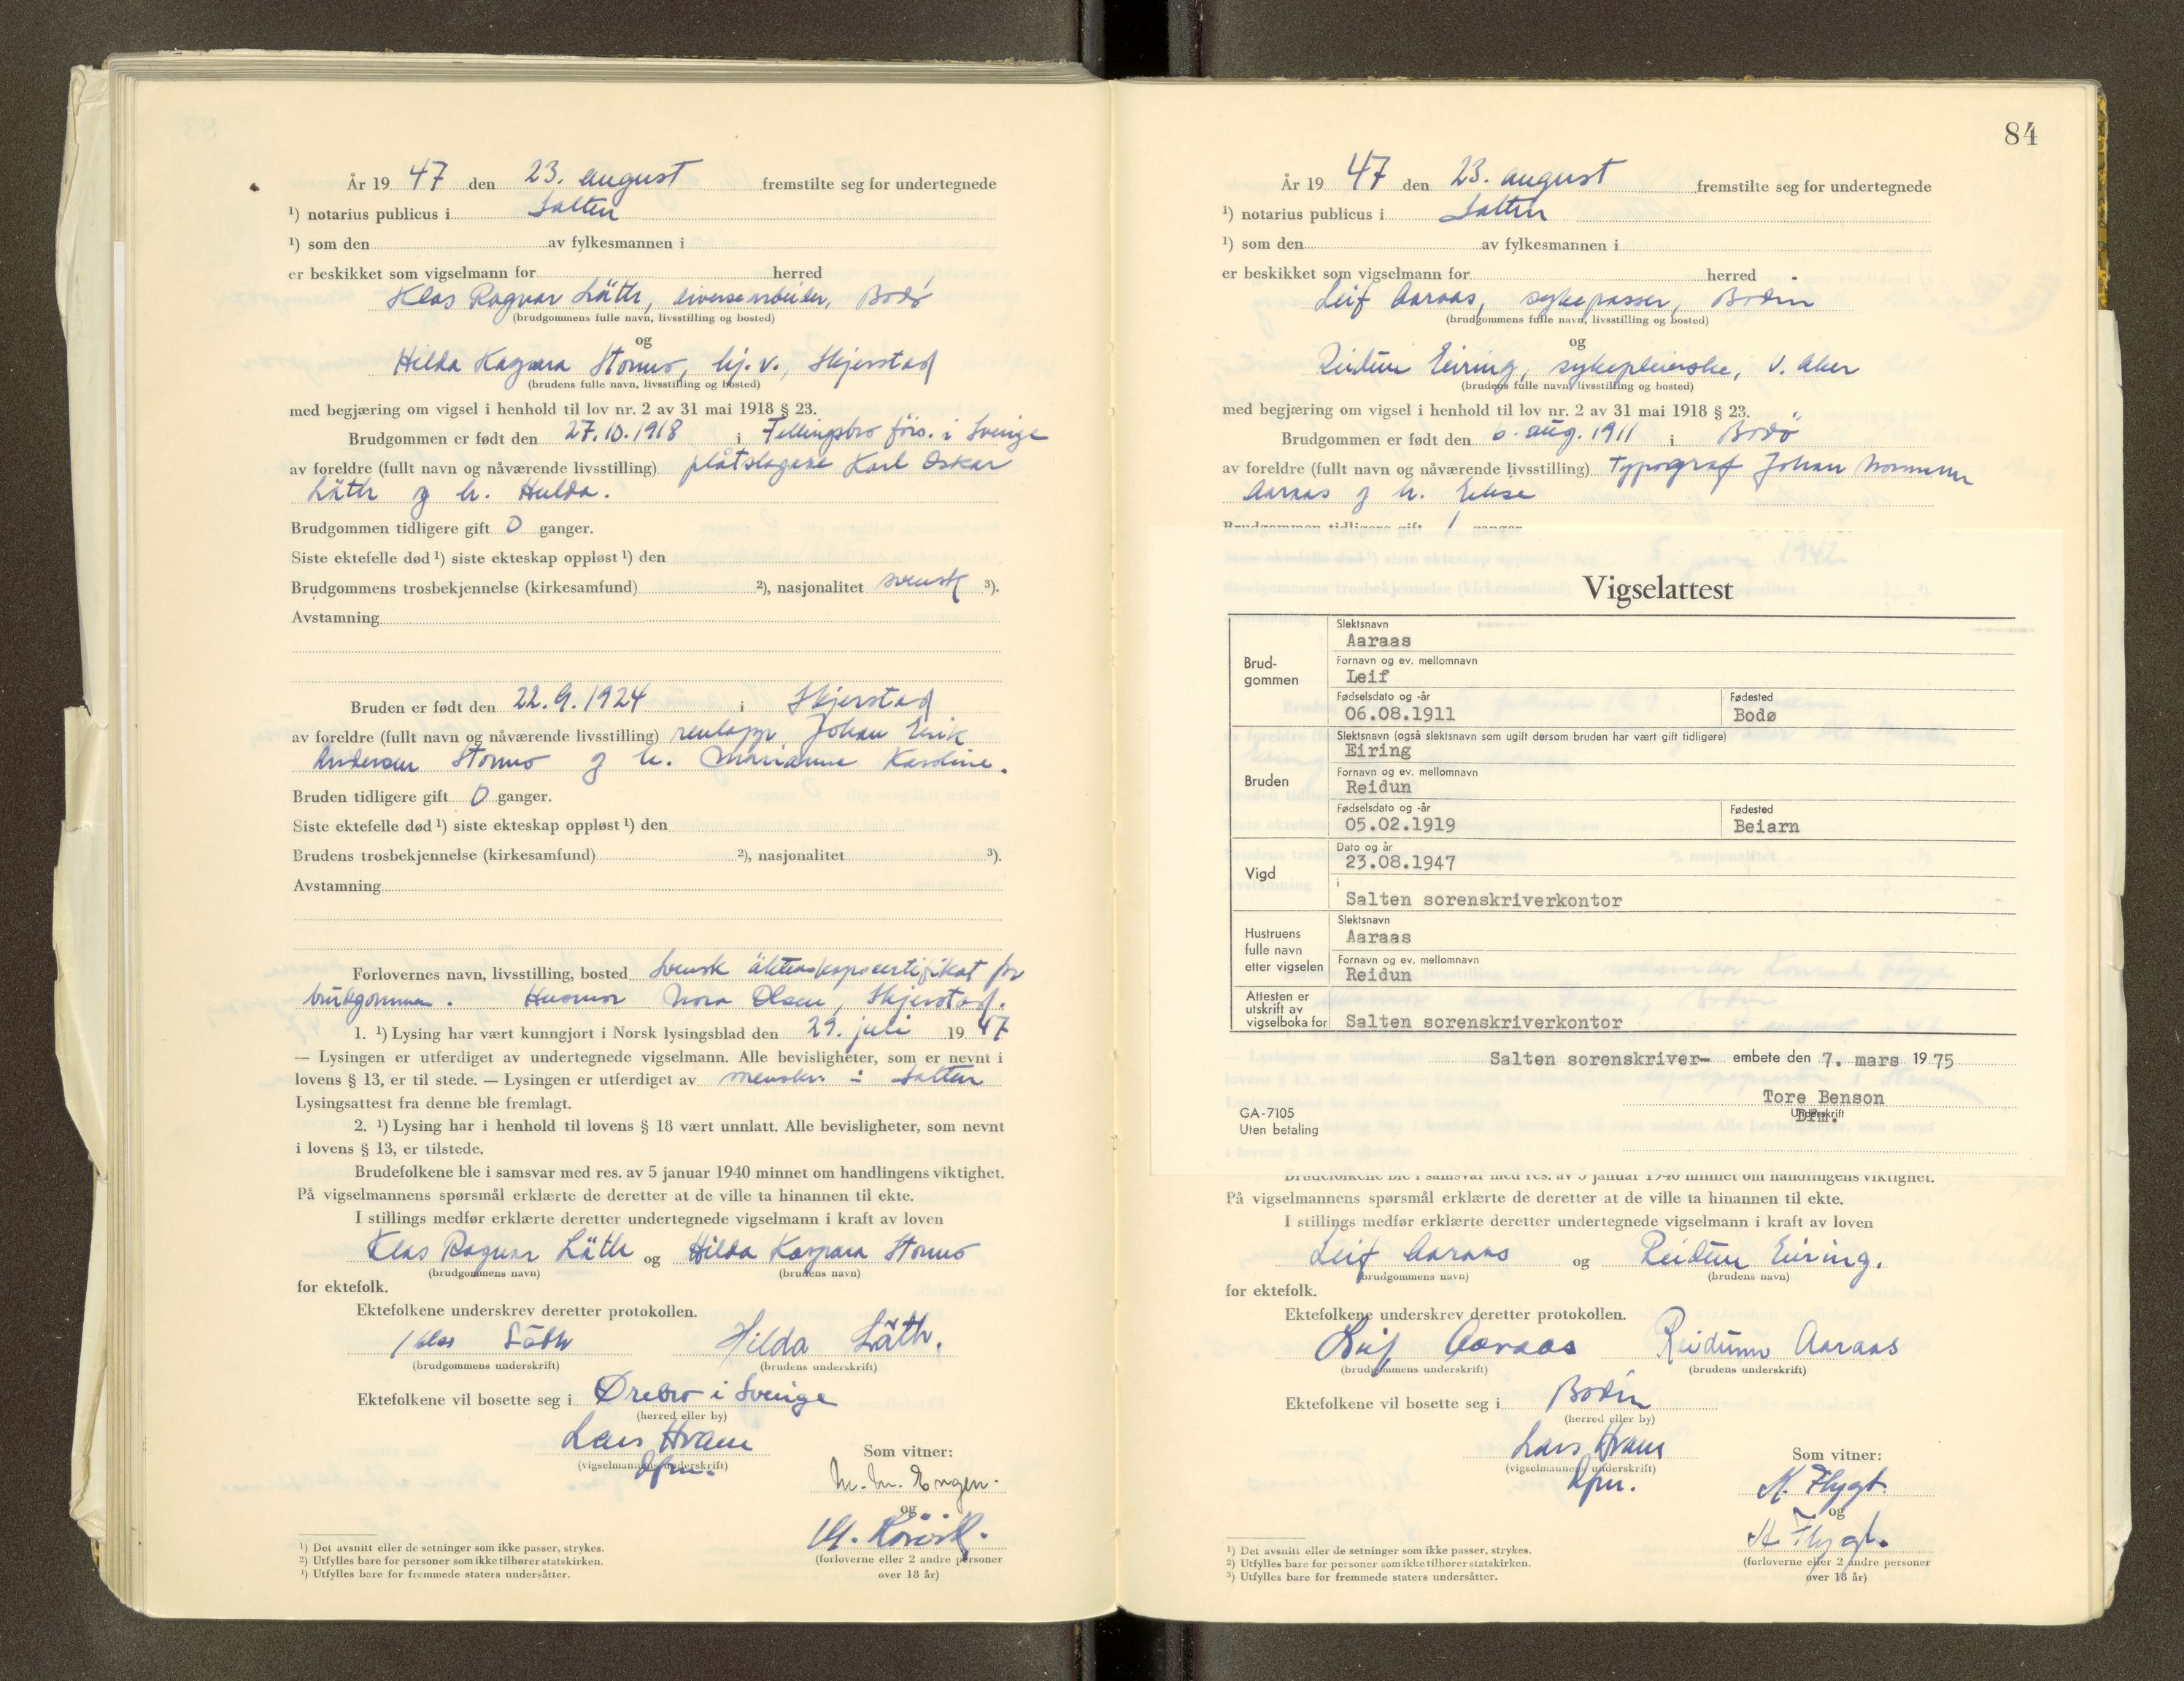 År 19 47 den 23. august fremstilte seg for undertegnede
¹) notarius publicus i Salten
¹) som den av fylkesmannen i
er beskikket som vigselmann for herred
Klas Ragnar Läth, diversearbeider, Bodø
(brudgommens fulle navn, livsstilling og bosted)
og
Hilda Kaspara Stormo, hj.v., Skjerstad
(brudens fulle navn, livsstilling og bosted)
med begjæring om vigsel i henhold til lov nr. 2 av 31 mai 1918 § 23.
Brudgommen er født den 27.10.1918 i Fellingsbro förs. i Sverige
av foreldre (fullt navn og nåværende livsstilling) plåtslagare Karl Oskar
Läth og h. Hulda.
Brudgommen tidligere gift 0 ganger.
Siste ektefelle død ¹) siste ekteskap oppløst ¹) den
Brudgommens trosbekjennelse (kirkesamfund) ²), nasjonalitet svensk ³).
Avstamning
Bruden er født den 22.9.1924 i Skjerstad
av foreldre (fullt navn og nåværende livsstilling) reinlapp Johan Erik
Andersen Stormo og h. Marianne Karoline.
Bruden tidligere gift 0 ganger.
Siste ektefelle død ¹) siste ekteskap oppløst ¹) den
Brudens trosbekjennelse (kirkesamfund) ²), nasjonalitet ³).
Avstamning
Forlovernes navn, livsstilling, bosted Svensk äktenskapscertifikat for
brudgommen. Husmor Nora Olsen, Skjerstad.
1. ¹) Lysing har vært kunngjort i Norsk lysingsblad den 29. juli 19 47
— Lysingen er utferdiget av undertegnede vigselmann. Alle bevisligheter, som er nevnt i
lovens § 13, er til stede. — Lysingen er utferdiget av i Salten
Lysingsattest fra denne ble fremlagt.
2. ¹) Lysing har i henhold til lovens § 18 vært unnlatt. Alle bevisligheter, som nevnt
i lovens § 13, er tilstede.
Brudefolkene ble i samsvar med res. av 5 januar 1940 minnet om handlingens viktighet.
På vigselmannens spørsmål erklærte de deretter at de ville ta hinannen til ekte.
I stillings medfør erklærte deretter undertegnede vigselmann i kraft av loven
Klas Ragnar Läth og Hilda Kaspara Stormo
(brudgommens navn) (brudens navn)
for ektefolk.
Ektefolkene underskrev deretter protokollen.
Klas Läth Hilda Läth.
(brudgommens underskrift) (brudens underskrift)
Ektefolkene vil bosette seg i Ørebro i Sverige
(herred eller by)
Lars Hvam
(vigselmannens underskrift)
dfm.
Som vitner:
M. M. Engen.
og
(forloverne eller 2 andre personer
over 18 år)
¹) Det avsnitt eller de setninger som ikke passer, strykes.
²) Utfylles bare for personer som ikke tilhører statskirken.
³) Utfylles bare for fremmede staters undersåtter.
84
År 19 47 den 23. august fremstilte seg for undertegnede
¹) notarius publicus i Salten
¹) som den av fylkesmannen i
er beskikket som vigselmann for herred
Leif Aaraas, sykepasser, Bodin
(brudgommens fulle navn, livsstilling og bosted)
og
Reidun Eiring, sykepleierske, V. Aker
(brudens fulle navn, livsstilling og bosted)
med begjæring om vigsel i henhold til lov nr. 2 av 31 mai 1918 § 23.
Brudgommen er født den 6. aug. 1911 i Bodø
av foreldre (fullt navn og nåværende livsstilling) Typograf Johan
Aaraas og h.
Brudgommen tidligere gift 1 ganger
Vigselattest
Brud-
gommen
Slektsnavn
Aaraas
Fornavn og ev. mellomnavn
Leif
Fødselsdato og -år Fødested
06.08.1911 Bodø
Bruden
Slektsnavn (også slektsnavn som ugift dersom bruden har vært gift tidligere)
Eiring
Fornavn og ev. mellomnavn
Reidun
Fødselsdato og -år Fødested
05.02.1919 Beiarn
Vigd
Dato og år
23.08.1947
i
Salten sorenskriverkontor
Hustruens
fulle navn
etter vigselen
Slektsnavn
Aaraas
Fornavn og ev. mellomnavn
Reidun
Attesten er
utskrift av
vigselboka for Salten sorenskriverkontor
Salten sorenskriver- embete den 7. mars 19 75
Tore Benson
Underskrift
Dfm.
GA-7105
Uten betaling
Brudefolkene ble i samsvar med res. av 5 januar 1940 minnet om handlingens viktighet.
På vigselmannens spørsmål erklærte de deretter at de ville ta hinannen til ekte.
I stillings medfør erklærte deretter undertegnede vigselmann i kraft av loven
Leif Aaraas og Reidun Eiring.
(brudgommens navn) (brudens navn)
for ektefolk.
Ektefolkene underskrev deretter protokollen.
Leif Aaraas Reidunn Aaraas
(brudgommens underskrift) (brudens underskrift)
Ektefolkene vil bosette seg i Bodin
(herred eller by)
Lars Hvam
(vigselmannens underskrift)
dfm.
Som vitner:
K. Flygt.
og
H Flygt.
(forloverne eller 2 andre personer
over 18 år)
¹) Det avsnitt eller de setninger som ikke passer, strykes.
²) Utfylles bare for personer som ikke tilhører statskirken.
³) Utfylles bare for fremmede staters undersåtter.